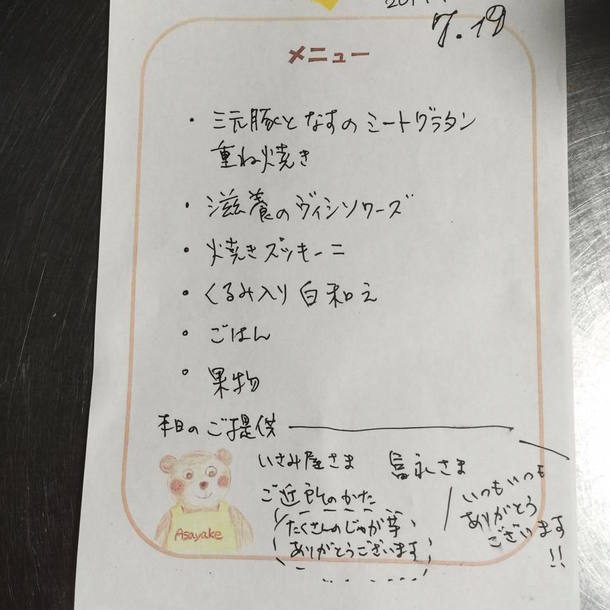 7.19
メニュー
・三元豚となすのミートグラタン
重ね焼き
・滋養のヴィシソワーズ
・焼きズッキーニ
・くるみ入り白和え
・ごはん
・果物
本日のご提供
いさみ屋さま 富永さま
ご近所のかた
たくさんのじゃが芋、
ありがとうございます
いつもいつも
ありがとう
ございます
!!
Asayake